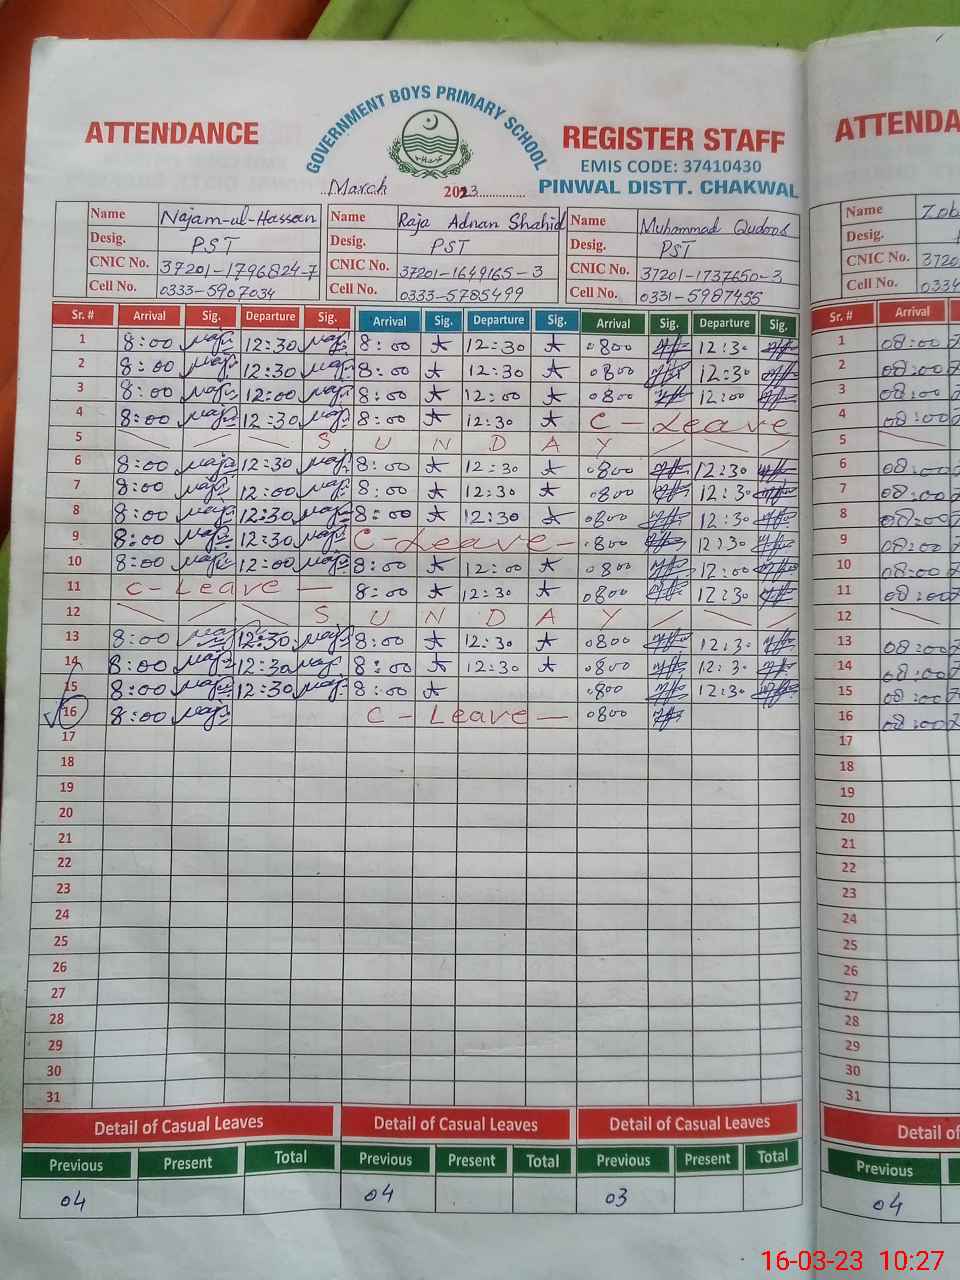 GOVERNMENT BOYS PRIMARY SCHOOL
ATTENDANCE REGISTER STAFF
EMIS CODE: 37410430
March 2023 PINWAL DISTT. CHAKWAL
Name Najam-ul-Hassan Name Raja Adnan Shahid Name Muhammad Qudoos
Desig. PST Desig. PST Desig. PST
CNIC No. 37201-1796824-7 CNIC No. 37201-1649165-3 CNIC No. 37201-1737650-3
Cell No. 0333-5907034 Cell No. 0333-5785499 Cell No. 0331-5987456
Sr. # Arrival Sig. Departure Sig. Arrival Sig. Departure Sig. Arrival Sig. Departure Sig.
1 8:00 12:30 8:00 12:30 0800 12:30
2 8:00 12:30 8:00 12:30 0800 12:30
3 8:00 12:00 8:00 12:00 0800 12:00
4 8:00 12:30 8:00 12:30 C-Leave
5 SUNDAY
6 8:00 12:30 8:00 12:30 0800 12:30
7 8:00 12:00 8:00 12:30 0800 12:30
8 8:00 12:30 8:00 12:30 0800 12:30
9 8:00 12:30 C-Leave- 0800 12:30
10 8:00 12:00 8:00 12:00 0800 12:00
11 C-Leave - 8:00 12:30 0800 12:30
12 SUNDAY
13 8:00 12:30 8:00 12:30 0800 12:30
14 8:00 12:30 8:00 12:30 0800 12:30
15 8:00 12:30 8:00 0800 12:30
16 8:00 C-Leave- 0800
17
18
19
20
21
22
23
24
25
26
27
28
29
30
31
Detail of Casual Leaves Detail of Casual Leaves Detail of Casual Leaves
Previous Present Total Previous Present Total Previous Present Total
04 04 03
ATTENDA
Name Zob
Desig.
CNIC No. 3720
Cell No. 0334
Sr. # Arrival
1 08:00
2 08:00
3 08:00
4 08:00
5
6 08:00
7 08:00
8 08:00
9 08:00
10 08:00
11 08:00
12
13 08:00
14 08:00
15 08:00
16 08:00
17
18
19
20
21
22
23
24
25
26
27
28
29
30
31
Detail of
Previous
04
16-03-23 10:27